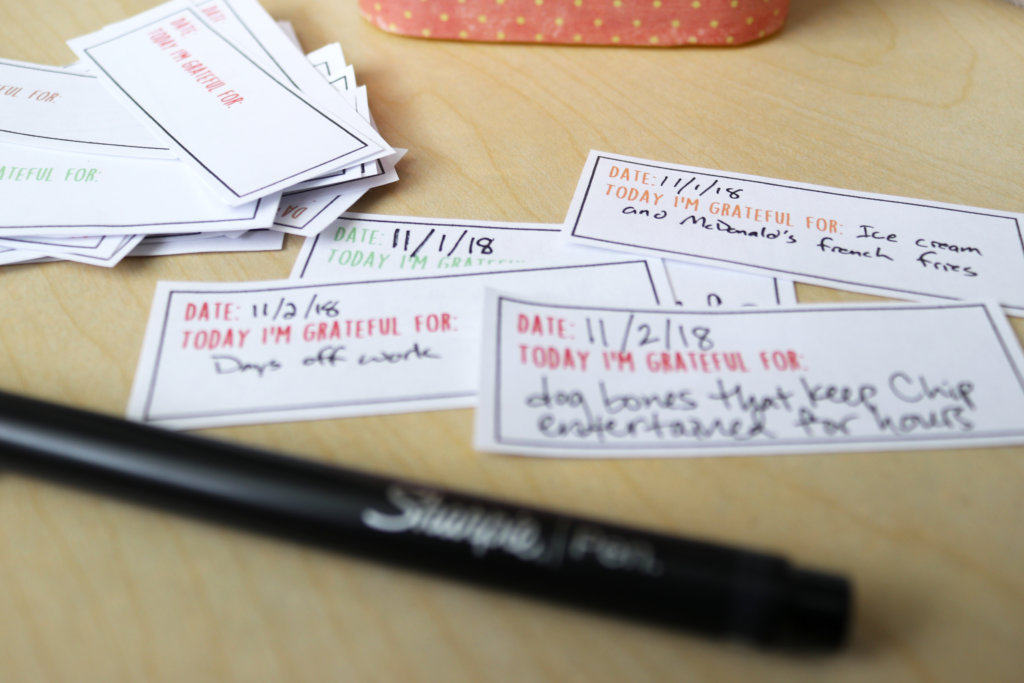 DATE:
TODAY I'M GRATEFUL FOR:
DATE:
FUL FOR:
ATEFUL FOR:
DA
DATE: 11/1/18
TODAY I'M GRATEFUL FOR: Ice cream
and McDonald's french fries
DATE: 11/1/18
TODAY I'M GRATEFUL
DATE: 11/2/18
TODAY I'M GRATEFUL FOR:
Days off work
DATE: 11/2/18
TODAY I'M GRATEFUL FOR:
dog bones that keep Chip
entertained for hours
Sharpie | Pen.